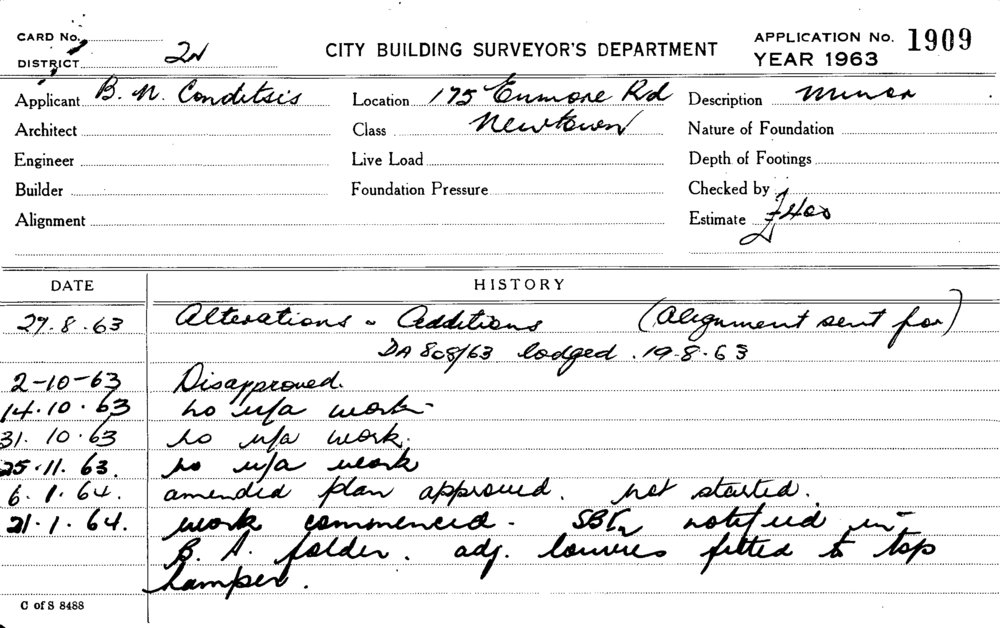 CARD No.
DISTRICT 2N
CITY BUILDING SURVEYOR'S DEPARTMENT
APPLICATION No. 1909
YEAR 1963
Applicant B. N. Conditsis
Location 175 Enmore Rd
Description Minor
Architect
Class Newtown
Nature of Foundation
Engineer
Live Load
Depth of Footings
Builder
Foundation Pressure
Checked by
Alignment
Estimate £400
DATE
HISTORY
27.8.63 Alterations & Additions (Alignment sent for)
DA 808/63 lodged. 19.8.63
2-10-63 Disapproved.
14.10.63 no u/a work
31.10.63 no u/a work.
25.11.63. no u/a work
6.1.64. amended plan approved. not started.
21.1.64. work commenced - notified in
B. A. folder. adj. louvres fitted to top
hamper.
C of S 8488